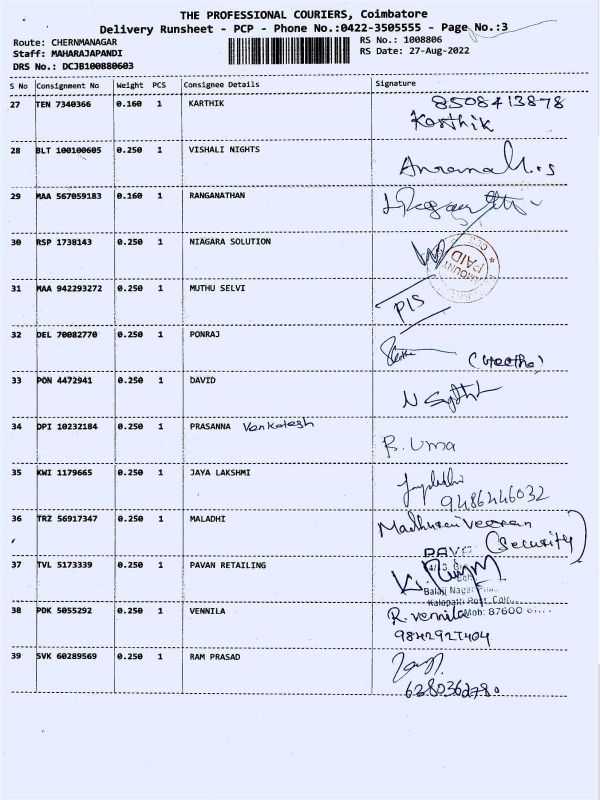 THE PROFESSIONAL COURIERS, Coimbatore
Delivery Runsheet - PCP - Phone No.:0422-3505555 - Page No.:3
Route: CHERNMANAGAR
Staff: MAHARAJAPANDI
DRS No.: DCJB100880603
RS No.: 1008806
RS Date: 27-Aug-2022
S No Consignment No Weight PCS Consignee Details Signature
27 TEN 7340366 0.160 1 KARTHIK 8508413878
Karthik
28 BLT 100100605 0.250 1 VISHALI NIGHTS
29 MAA 567059183 0.160 1 RANGANATHAN
30 RSP 1738143 0.250 1 NIAGARA SOLUTION
AMOUNT PAID
31 MAA 942293272 0.250 1 MUTHU SELVI
P1S
32 DEL 70082770 0.250 1 PONRAJ
(Geetha)
33 PON 4472941 0.250 1 DAVID
34 DPI 10232184 0.250 1 PRASANNA Venkatesh
B. Uma
35 KWI 1179665 0.250 1 JAYA LAKSHMI
9486446032
36 TRZ 56917347 0.250 1 MALADHI Madhurai Veeran
(Security)
37 TVL 5173339 0.250 1 PAVAN RETAILING
Balaji Nagar
Kalapatti Post
Mob: 87600
38 PDK 5055292 0.250 1 VENNILA R. Vennila
9842927404
39 SVK 60289569 0.250 1 RAM PRASAD
6280362780